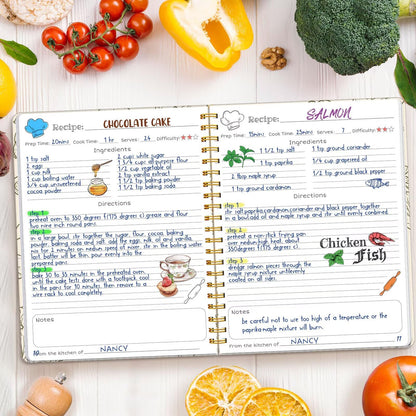 Recipe: CHOCOLATE CAKE
Prep Time: 20mins Cook Time: 1 hr Serves: 24 Difficulty:
Ingredients
1 tsp salt
2 eggs
1 cup milk
1 cup boiling water
3/4 cup unsweetened
cocoa powder
2 cups white sugar
1 3/4 cups all-purpose flour
1/2 cup vegetable oil
2 tsp vanilla extract
1 1/2 tsp baking powder
1 1/2 tsp baking soda
Directions
step 1
preheat oven to 350 degrees F(175 degrees C) grease and flour
two nine inch round pans.
step 2
in a large bowl, stir together the sugar, flour, cocoa, baking
powder, baking soda and salt. add the eggs, milk, oil and vanilla,
mix for 2 minutes on medium speed of mixer. stir in the boiling water
last. batter will be thin. pour evenly into the
prepared pans.
step 3
bake 30 to 35 minutes in the preheated oven,
until the cake tests done with a toothpick. cool
in the pans for 10 minutes, then remove to a
wire rack to cool completely.
Notes
10 From the kitchen of NANCY
Recipe: SALMON
Prep Time: 15mins Cook Time: 25mins Serves: 7 Difficulty:
Ingredients
1 1/2 tsp salt
1 tsp paprika
2 tbsp maple syrup
1 tsp ground cardamon
1 tsp ground coriander
1/4 cup grapeseed oil
1/2 tsp black pepper
Directions
step 1
stir salt paprika cardamon,coriander and black pepper together
in a bowl.add oil and maple syrup and stir until evenly combined
step 2
preheat a non-stick frying pan
over medium-high heat, about
360degrees F(185 degrees C).
step 3
dredge salmon pieces through the
maple syrup mixture untilevenly
coated on all sides.
Chicken
Fish
Notes
be careful not to use too high of a temperature or the
paprika-maple mixture will burn.
From the kitchen of NANCY 11